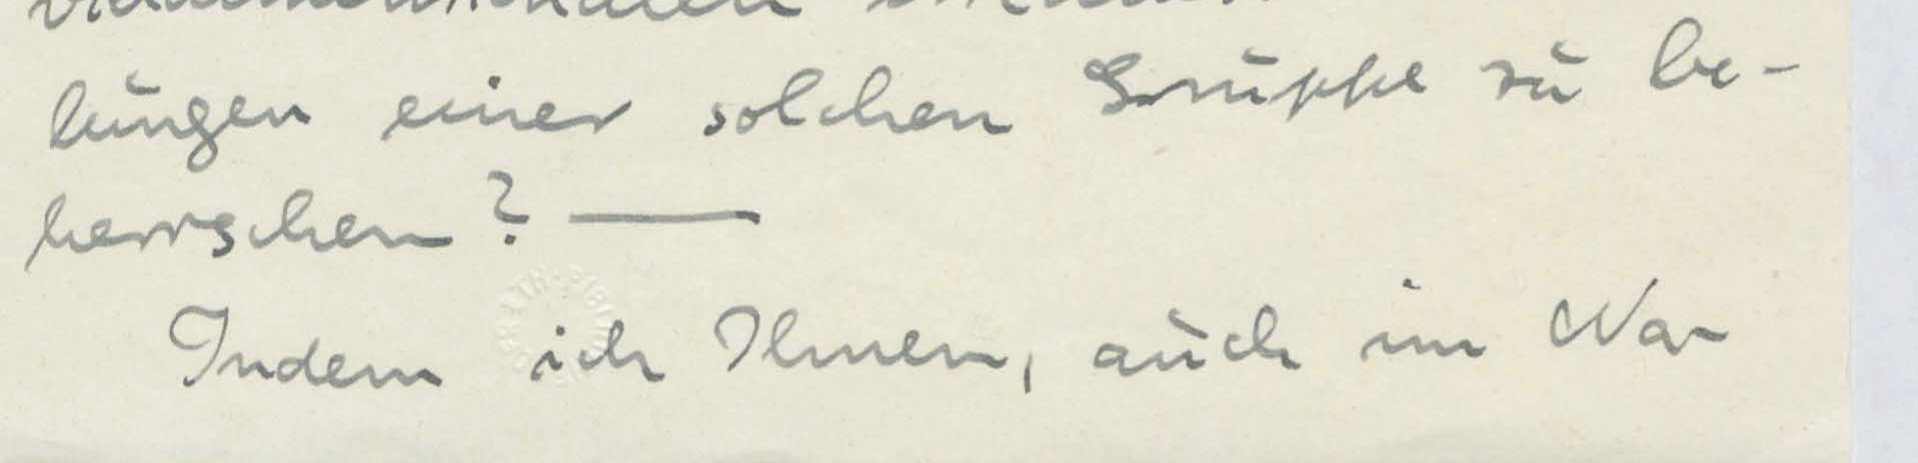 lungen einer solchen Gruppe zu be-
herrschen? —
Indem ich Ihnen, auch im Na-